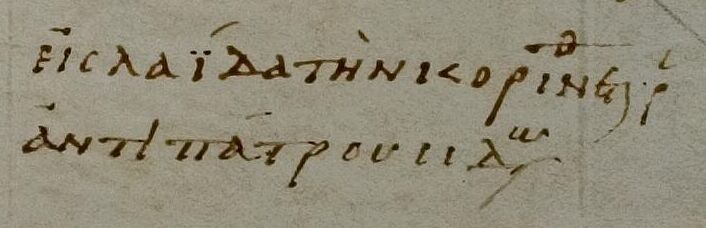 εἰς λαΐδα τὴν κορινθ
ἀντιπάτρου σιδω